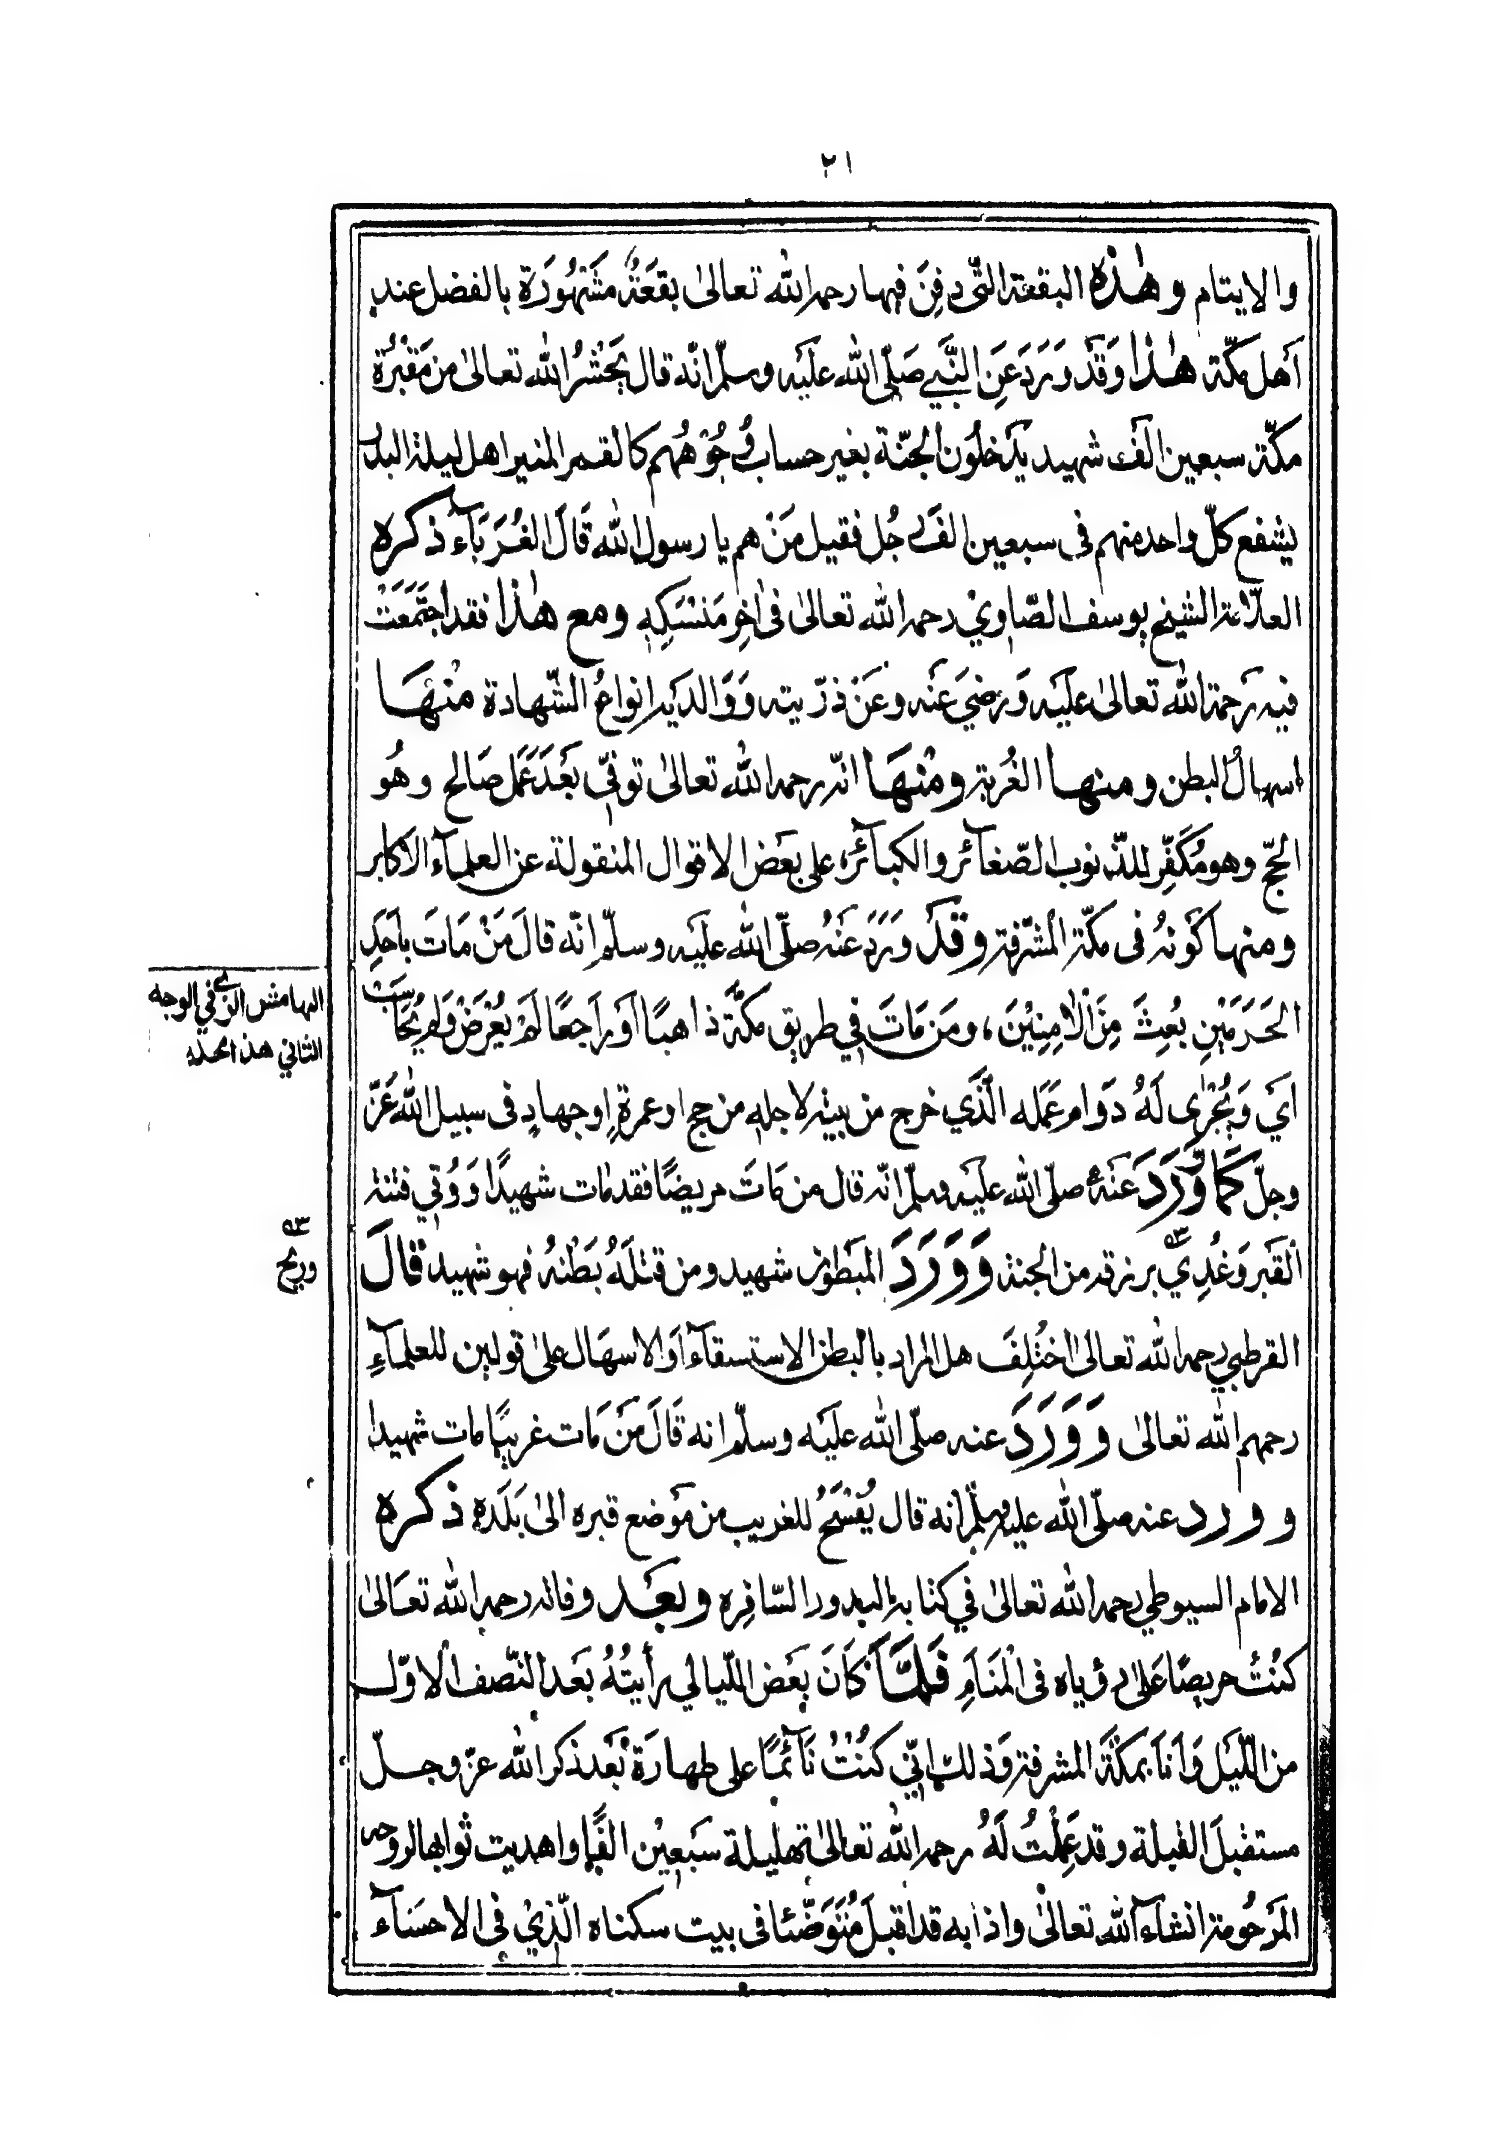 ٢١
والايتام وهٰذه البقعة التّى دفِنَ فيها رحمه الله تعالىٰ بقعَةٌ مشَهُورَة بالفضل عند
اَهل مكّة هٰذا وَقَدْ وَرَدَ عَنِ النَّبِيّ صَلّى الله علَيْه وسلّم انّه قال يُحْشَرُ الله تعالىٰ من مَقْبُرة
مكّة سبعين الف شهيد يَدْخلُون الجنّة بغير حساب وُجُوْهُهم كالقمر المنير اهل ليلة البدر
يشفع كلّ واحد منهم فى سبعين الف رجُل فقيل مَنْ هم يا رسول الله قَالَ الغُرَبَآء ذكره
العلّامة الشيخ يوسف الصّاويْ رحمه الله تعالىٰ فى اٰخِر مَنْسَكِهِ ومع هٰذا فقد اجتَمَعَتْ
فيه رحمة الله تعالىٰ علَيْه وَرضيَ عَنْه وعَنْ ذرّيته وَوَالدَيْه انواعُ الشّهادة منْهَا
اسهالُ البطن ومنها الغُربة ومنْهَا انّه رحمه الله تعالىٰ توفّى بَعْدَ عَمَل صَالح وهُو
الحجّ وهو مُكَفِّر للذّنوب الصّغآئر والكبآئر على بعَض الاقوال المنقولة عن العلمآء الاكابر
ومنها كَونُهُ فى مكّة المشرّفة وقَدْ وَرَدَ عَنْهُ صلّى الله عليْه وسلّم انّه قالَ مَنْ مَاتَ باَحَدِ
الحَرَمَيْنِ بُعِثَ مِنَ الْاٰمِنِيْنَ، ومَن مَاتَ فِي طريق مكّة ذاهبًا اَوْ رَاجعًا لَمْ يُعْرَضْ وَلم يُحَاسَبْ
اَيْ وَيُجْرٰى لَهُ دَوَام عَمَله الَّذي خرج من بيته لاجله من حج او عمرةٍ او جهادٍ فى سبيل الله عَزّ
وجلّ كمَا وَرَدَ عَنْهُ صلّى الله علَيْه وسلّم انّه قال من مَاتَ مريضًا فقد مات شهيدًا وَوُقي فتنة
القَبْر وَغُدِي ٥٣ برزقه من الجنة وَوَرَدَ المبْطوْن شهيد ومن قتلَهُ بَطْنُه فهو شهيد قالَ
القرطبي رحمه الله تعالىٰ اختُلِفَ هل المراد بالبطن الاستسقآء اَو الاسهَال علىٰ قولين للعلمآءِ
رحمهم الله تعالىٰ وَوَرَدَ عنه صلّى الله علَيْه وسلّم انه قَالَ مَنْ مَات غريبًا مات شهيدا
وورد عنه صلّى الله عليه وسلّم انه قال يُفْسَحُ للغريب من مَوْضع قبره الىٰ بَلَدهِ ذكره
الامام السيوطي رحمه الله تعالىٰ في كتابه البدور السّافِره وبعَد وفاته رحمه الله تعَالىٰ
كنُتُ حريصًا عَلىٰ رؤياه فى الْمنَام فَلمّا كَانَ بعَض اللّيالي رأيتُهُ بعَد النّصف الاوّل
من اللّيْل وَاَنَا بمكَةَ المشرفة وَذلك انّي كنْتُ نَآئمًا على طهارَة بَعْد ذكر الله عزّ وجلّ
مستقبلَ القبلة وقد عَمِلْتُ لَهُ رحمه الله تعالىٰ تهليلة سَبعيْن الفًا واهديت ثوابها لروحه
المَرحُومة انشآء الله تعالىٰ واذا به قد اقبلَ مُتَوَضّئا فى بيت سكناه الّذيْ فى الاحسَآء
الهامش الذي في الوجه
الثاني هذ المحله
٥٣
وريح